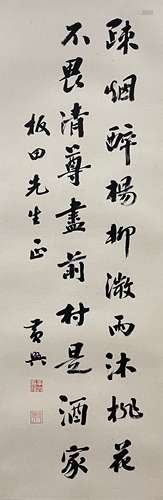 疎烟醉楊柳澂雨沐桃花
不畏清尊盡前村是酒家
板田先生正
黄興